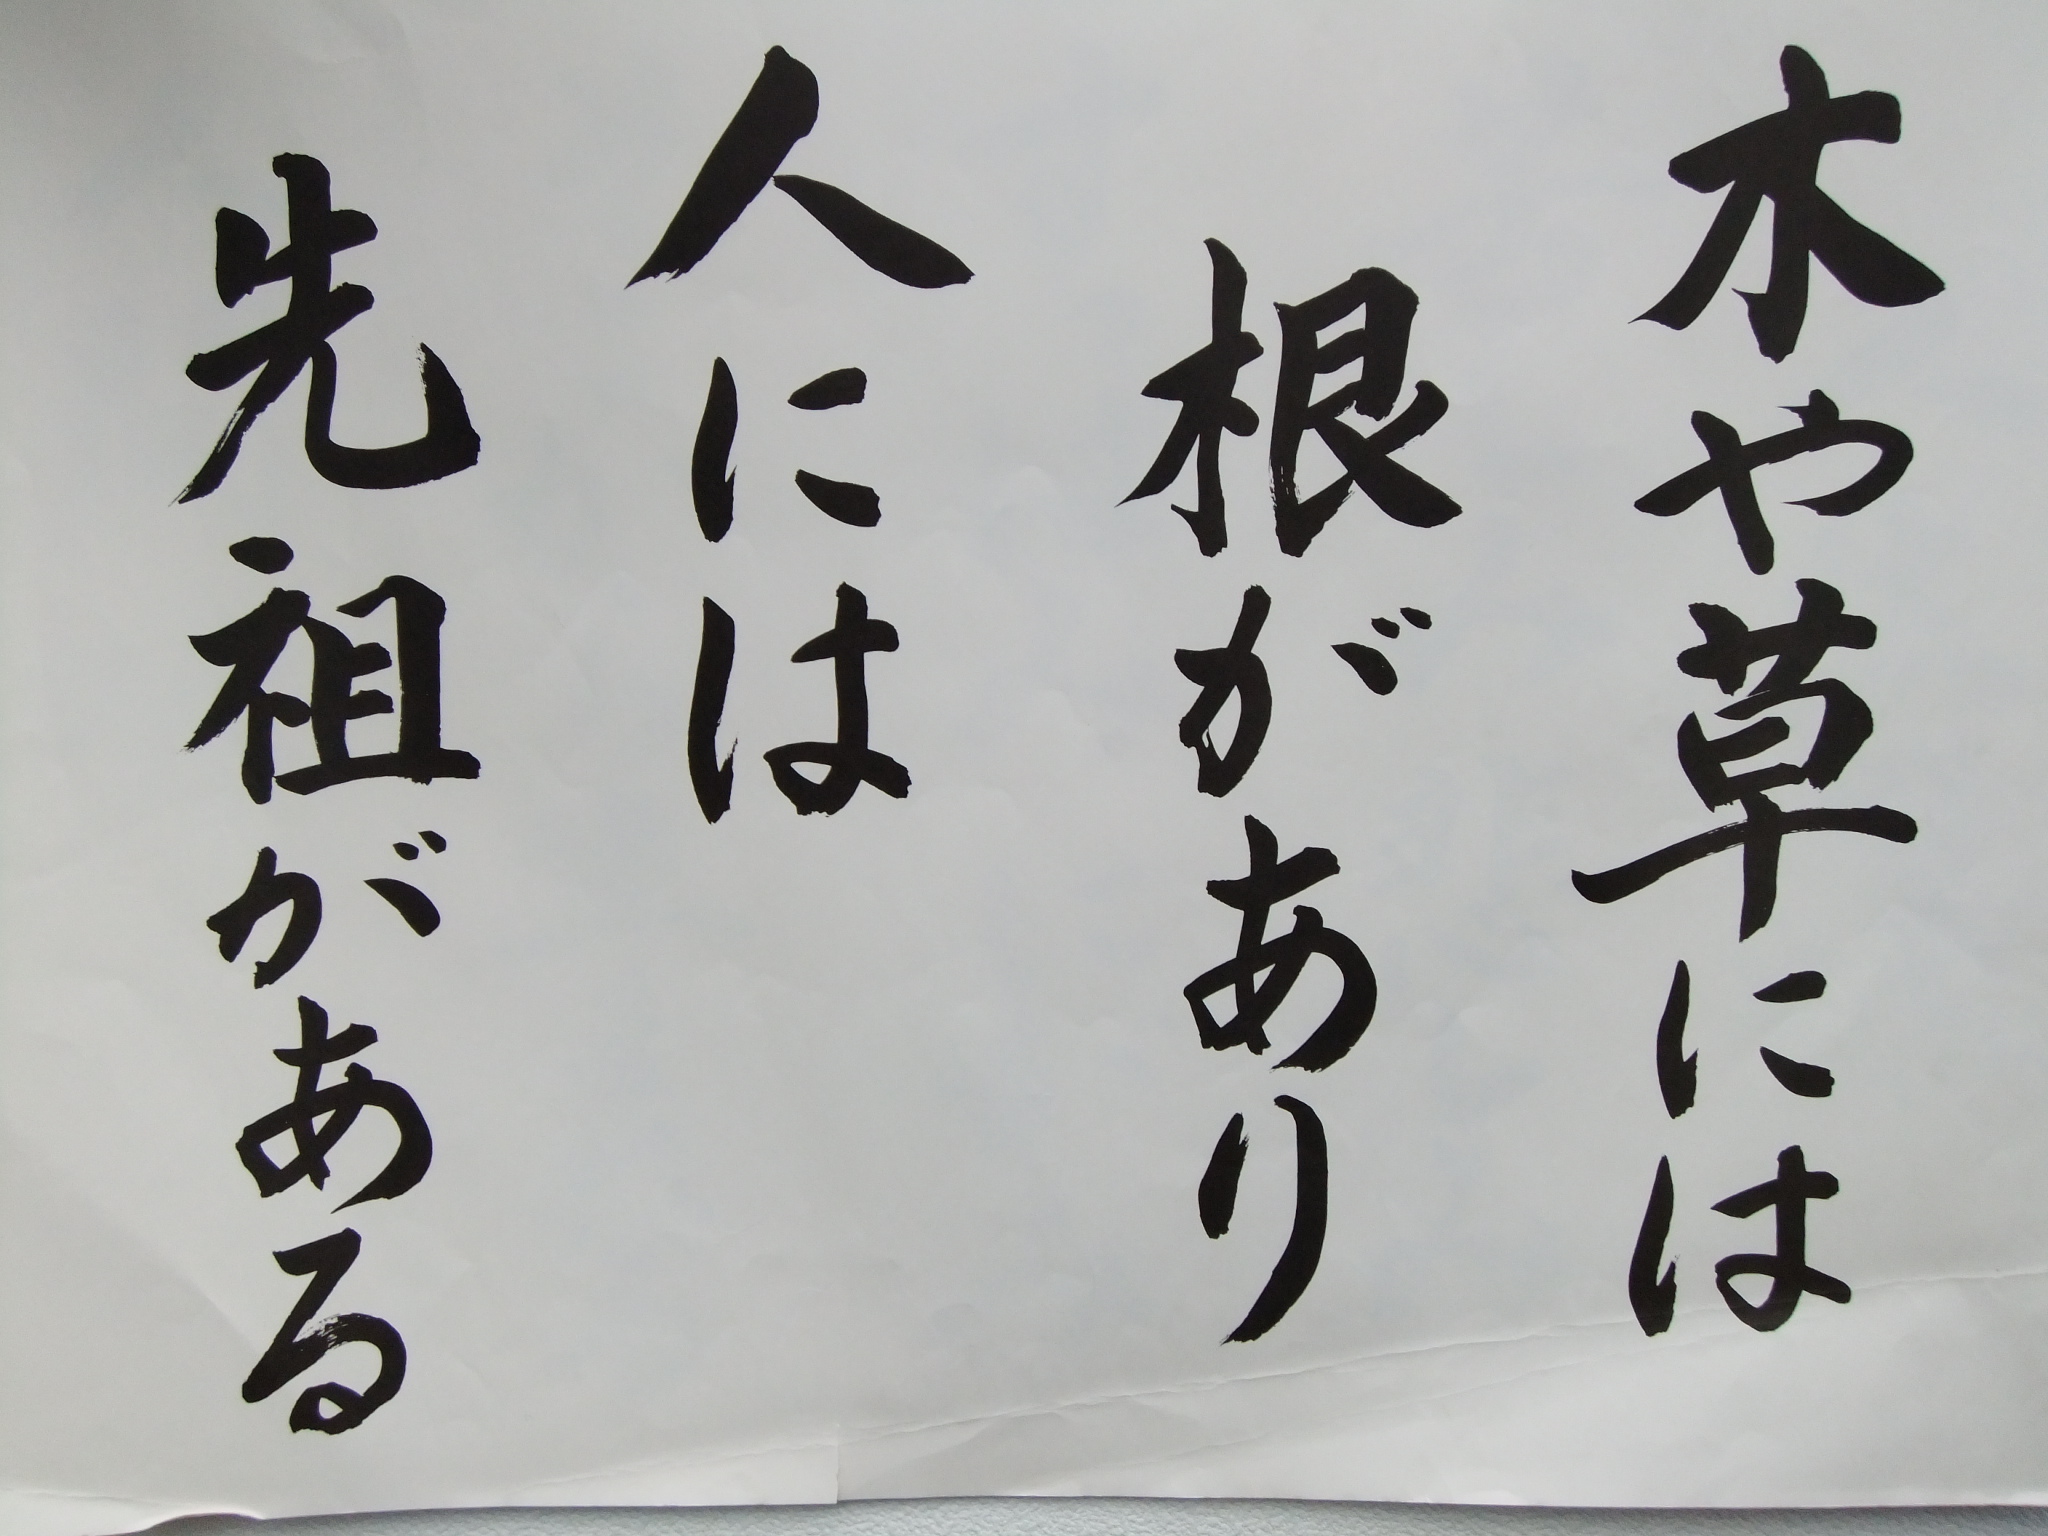 木や草には
根があり
人には
先祖がある